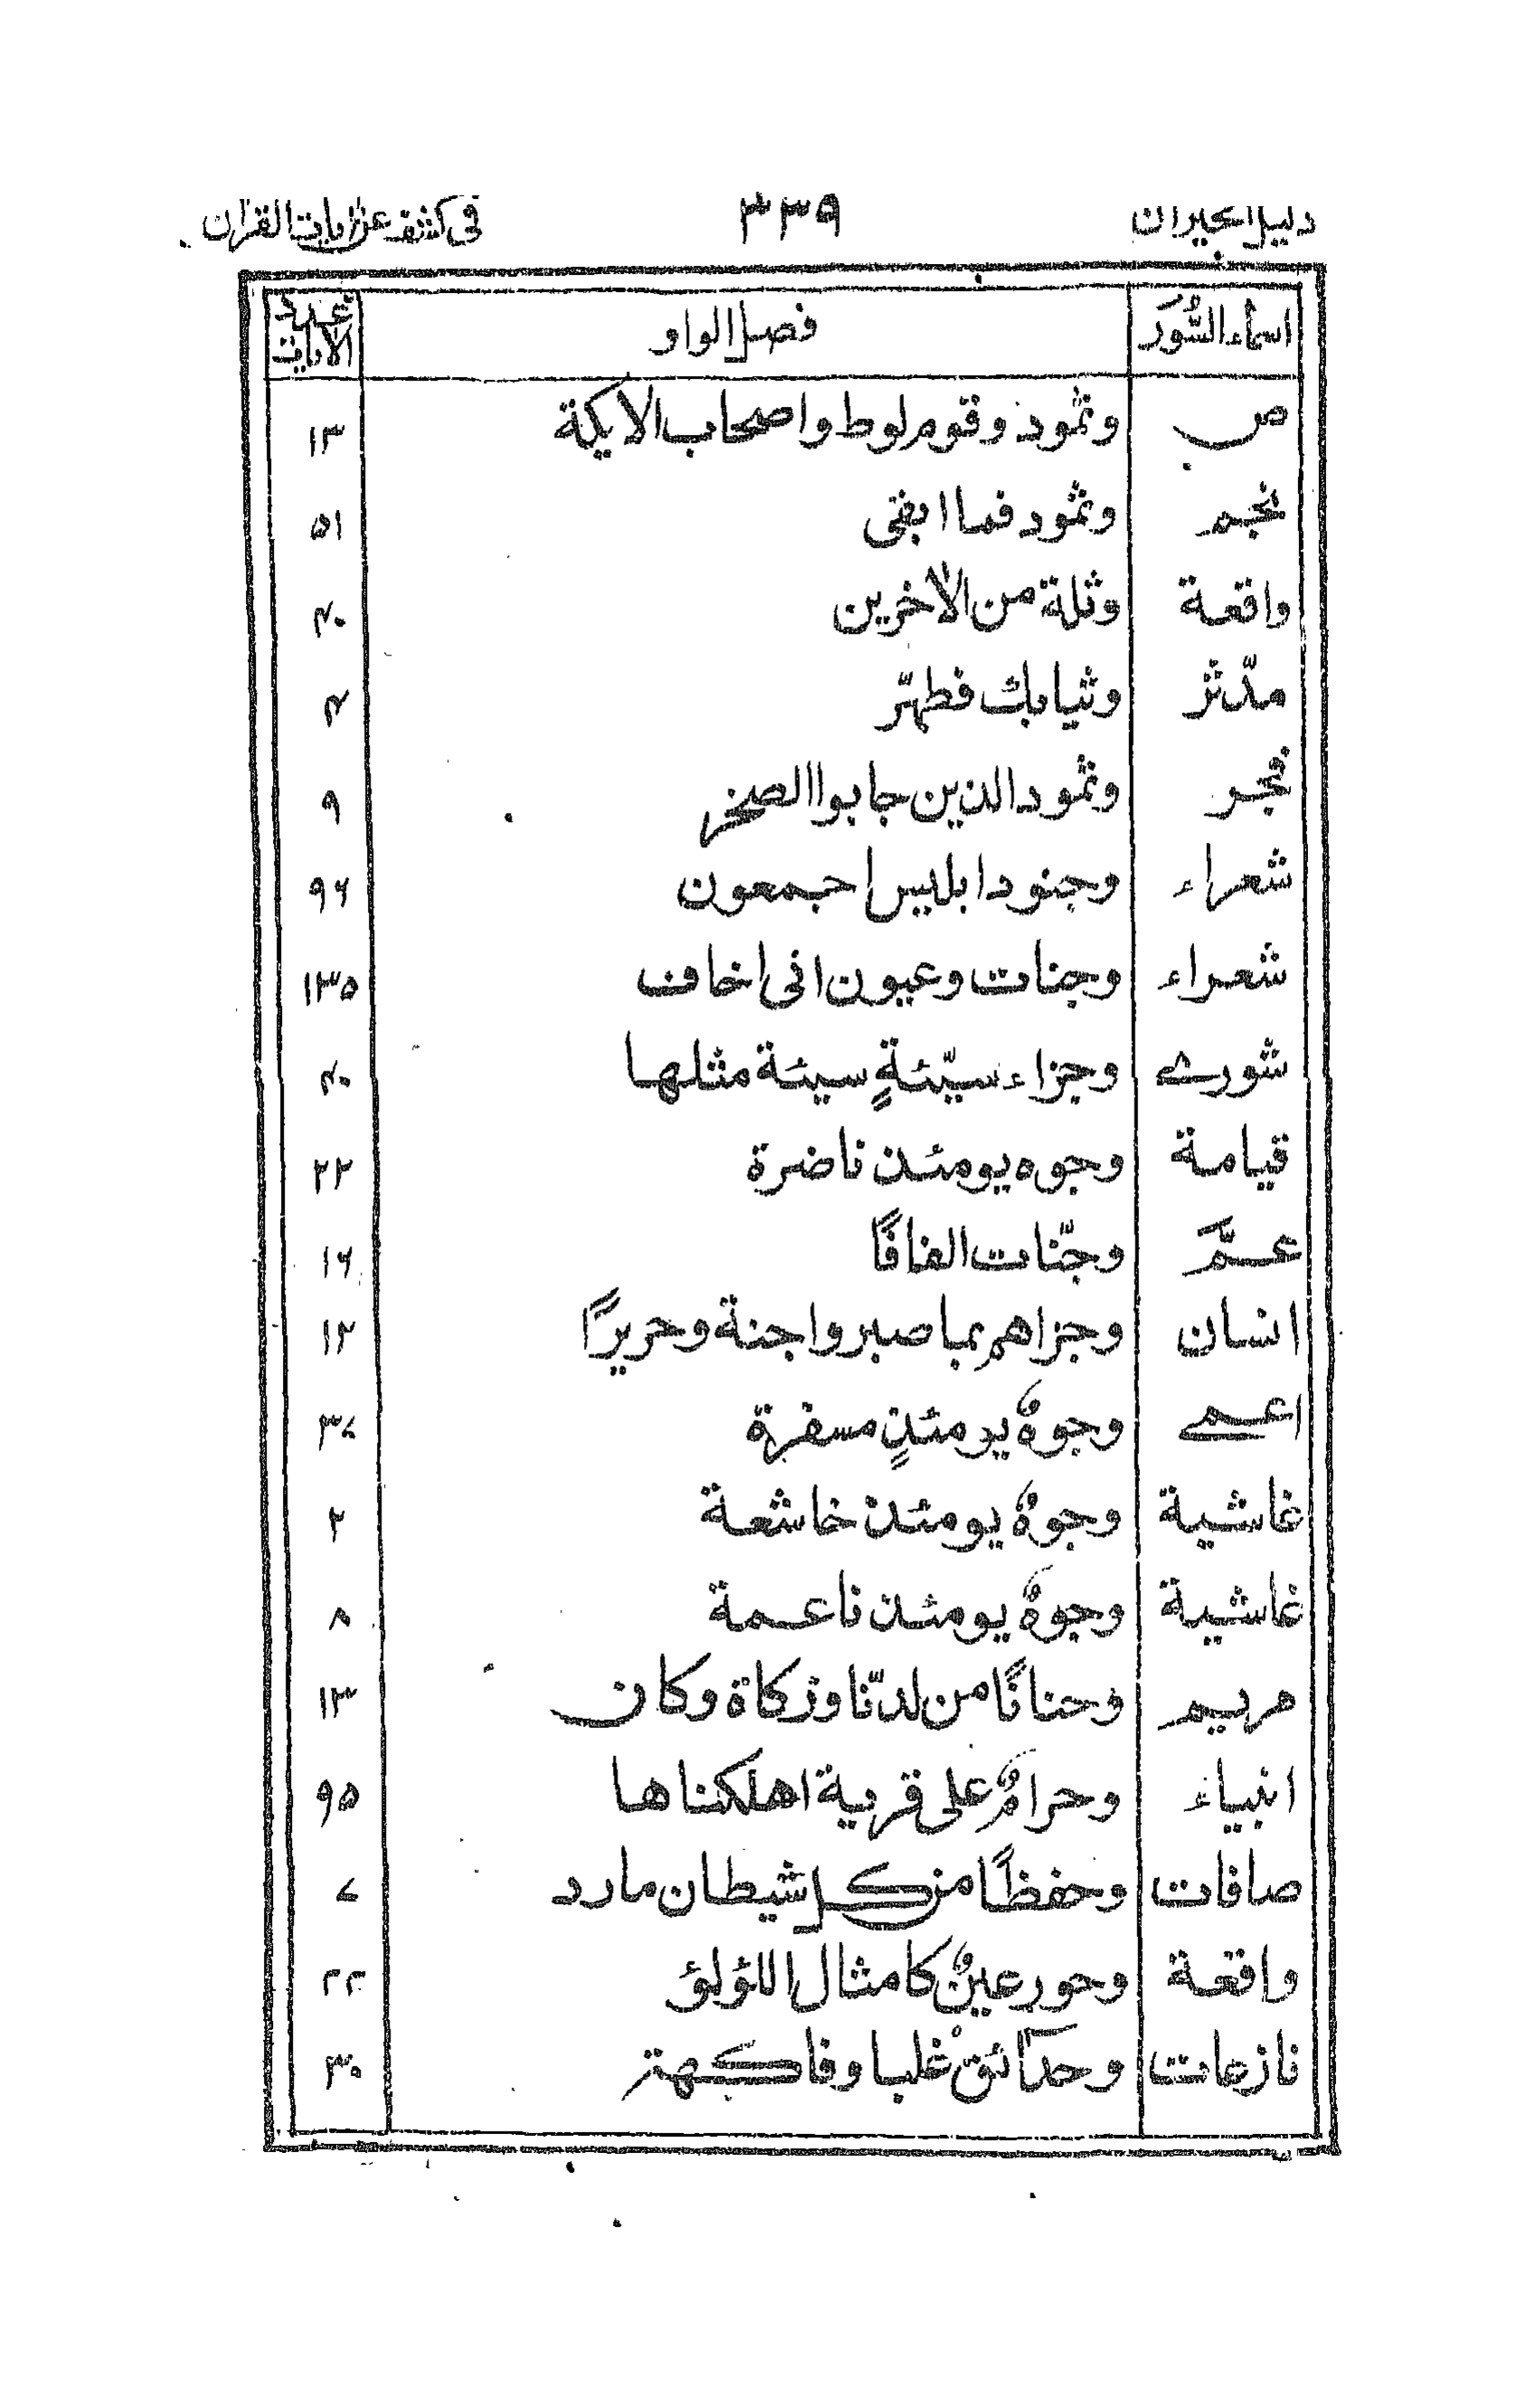 دليل الحيران ٣٣٩ فى كشف عن اٰيات القراٰن
اسماء السُّوَر فصل الواو عدد الاٰيات
ص وثمود وقوم لوط واصحاب الايكة ١٣
نجم وثمود فما ابقى ٥١
واقعة وثلة من الاٰخرين ۴٠
مدّثر وثيابك فطهّر ۴
فجر وثمود الذين جابوا الصخر ٩
شعراء وجنود ابليس اجمعون ٩۶
شعراء وجنات وعيون انى اخاف ١٣٥
شورے وجزاء سيّئةٍ سيئة مثلها ۴٠
قيامة وجوه يومئذ ناضرة ٢٢
عمَّ وجنّات الفافًا ١۶
انسان وجزاهم بما صبروا جنة وحريرًا ١٢
اعمے وجوهٌ يومئذٍ مسفرة ٣٧
غاشية وجوهٌ يومئذ خاشعة ٢
غاشية وجوهٌ يومئذ ناعمة ٨
مريم وحنانًا من لدنّا وزكاة وكان ١٣
انبياء وحرامٌ على قرية اهلكناها ٩٥
صافات وحفظًا من كل شيطان مارد ٧
واقعة وحور عينٌ كامثال اللؤلؤ ٢٢
نازعات وحدآئق غلبا وفاكهة ٣٠